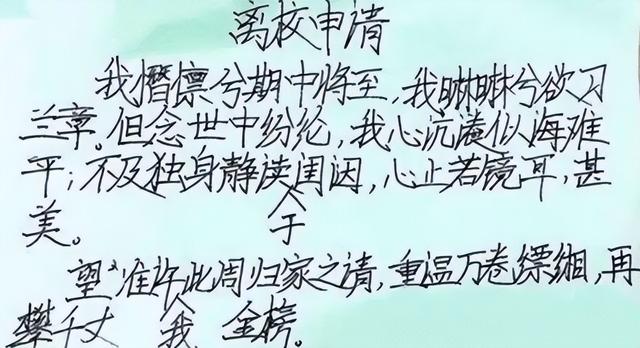 离校申请
我憯懔兮期中将至,我啉啉兮欲习
兰章。但念世中纷纶,我心沉淹似海难
平;不及独身静读于闺因,心止若镜耳,甚
美。
望准许我此周归家之请,重温万卷缥缃,再
攀千丈金榜。